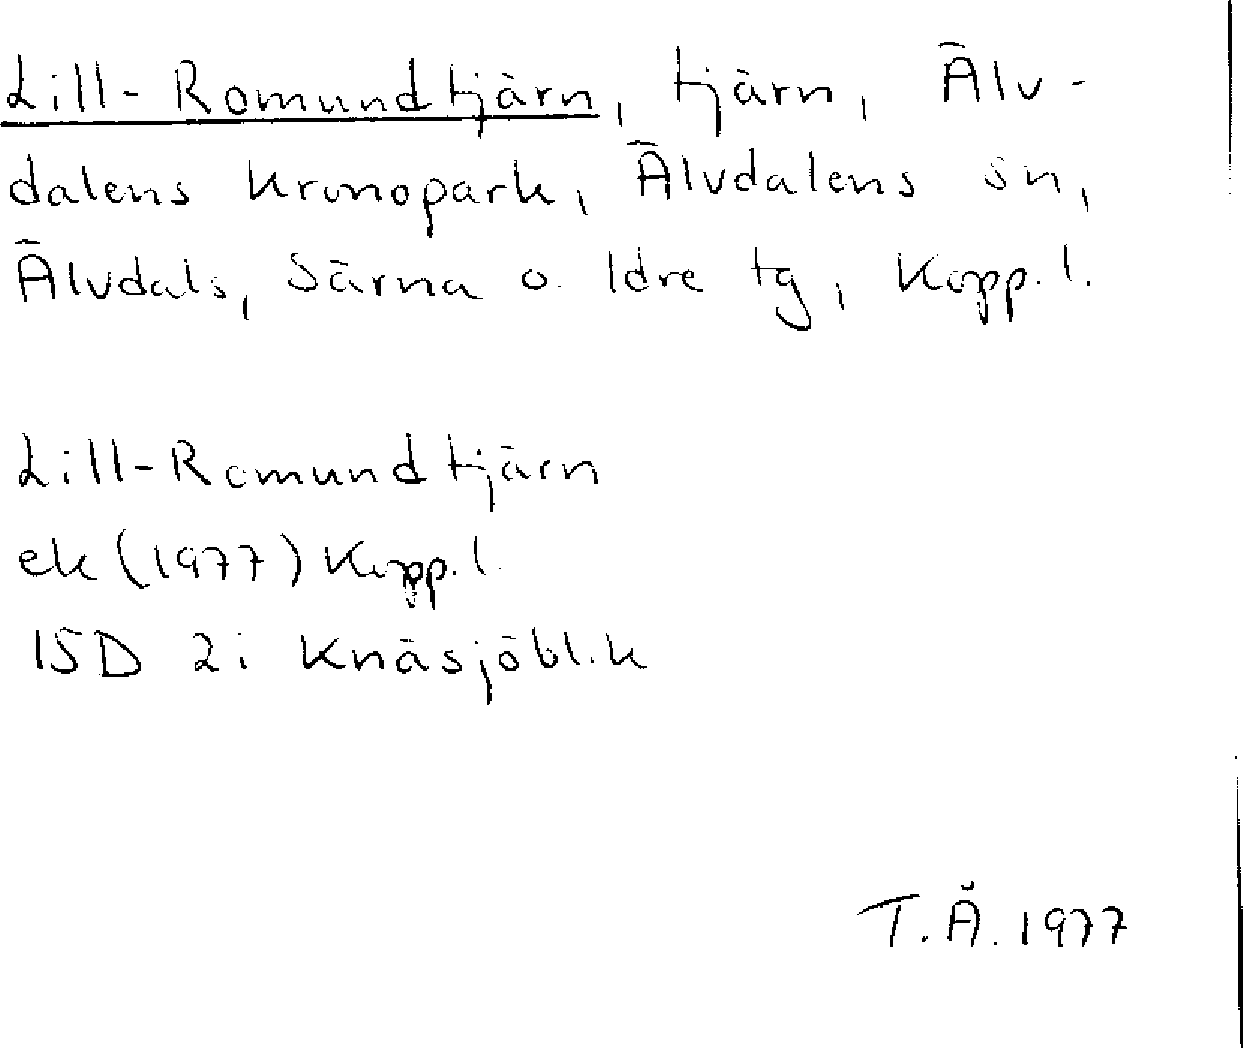 Lill-Romundtjärn, tjärn, Älv-
dalens Kronopark, Älvdalens sn,
Älvdals, Särna o. Idre tg, Kopp. l.
Lill-Romundtjärn
ek (1977) Kopp. l.
15D 2i Knäsjöbl.k
T.Å. 1977